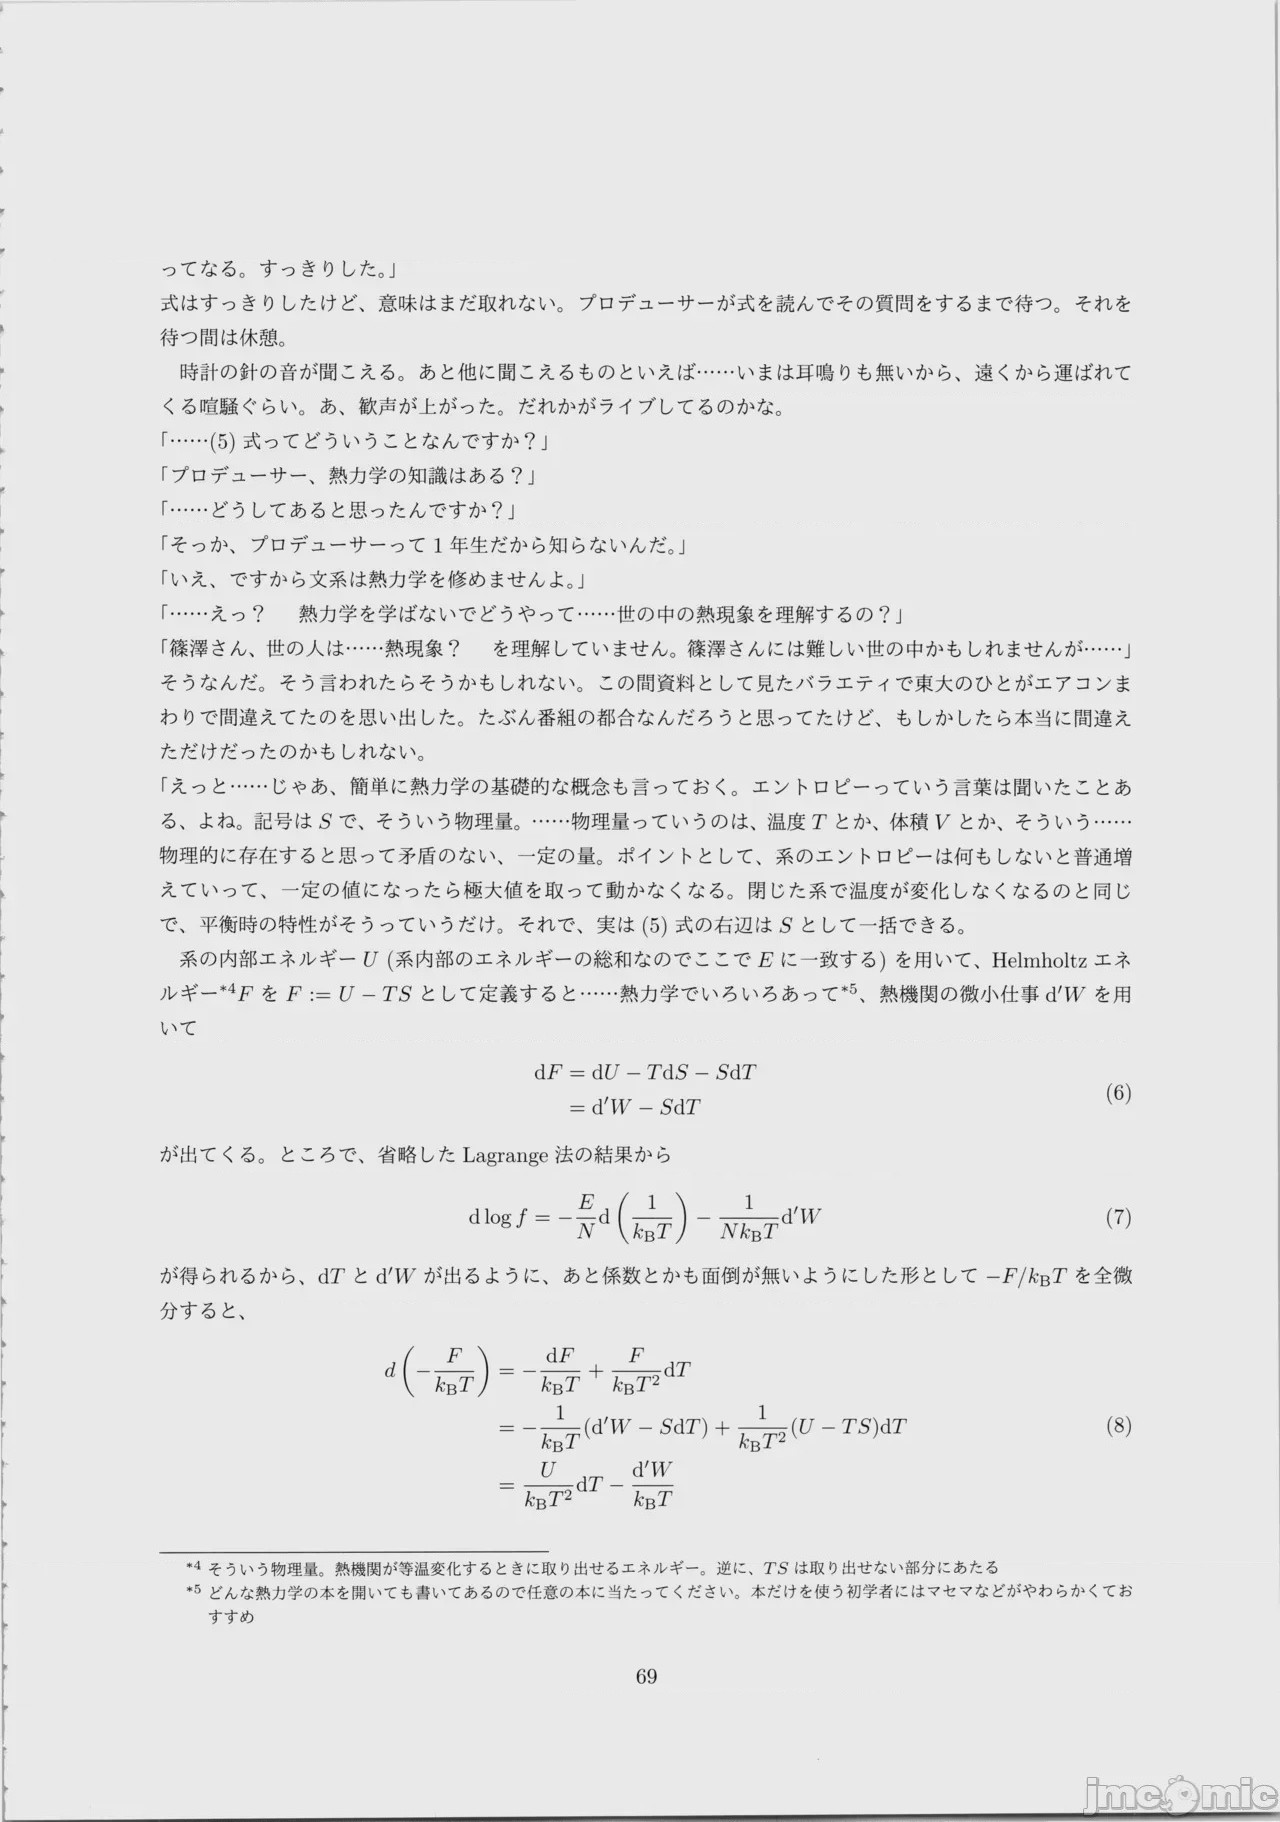 ってなる。すっきりした。」
式はすっきりしたけど、意味はまだ取れない。プロデューサーが式を読んでその質問をするまで待つ。それを
待つ間は休憩。
時計の針の音が聞こえる。あと他に聞こえるものといえば……いまは耳鳴りも無いから、遠くから運ばれて
くる喧騒ぐらい。あ、歓声が上がった。だれかがライブしてるのかな。
「……(5) 式ってどういうことなんですか？」
「プロデューサー、熱力学の知識はある？」
「……どうしてあると思ったんですか？」
「そっか、プロデューサーって 1 年生だから知らないんだ。」
「いえ、ですから文系は熱力学を修めませんよ。」
「……えっ？　熱力学を学ばないでどうやって……世の中の熱現象を理解するの？」
「篠澤さん、世の人は……熱現象？　を理解していません。篠澤さんには難しい世の中かもしれませんが……」
そうなんだ。そう言われたらそうかもしれない。この間資料として見たバラエティで東大のひとがエアコンま
わりで間違えてたのを思い出した。たぶん番組の都合なんだろうと思ってたけど、もしかしたら本当に間違え
ただけだったのかもしれない。
「えっと……じゃあ、簡単に熱力学の基礎的な概念も言っておく。エントロピーっていう言葉は聞いたことあ
る、よね。記号は S で、そういう物理量。……物理量っていうのは、温度 T とか、体積 V とか、そういう……
物理的に存在すると思って矛盾のない、一定の量。ポイントとして、系のエントロピーは何もしないと普通増
えていって、一定の値になったら極大値を取って動かなくなる。閉じた系で温度が変化しなくなるのと同じ
で、平衡時の特性がそうっていうだけ。それで、実は (5) 式の右辺は S として一括できる。
系の内部エネルギー U (系内部のエネルギーの総和なのでここで E に一致する) を用いて、Helmholtz エネ
ルギー*4F を F := U − TS として定義すると……熱力学でいろいろあって*5、熱機関の微小仕事 d′W を用
いて
dF = dU − TdS − SdT
= d′W − SdT
(6)
が出てくる。ところで、省略した Lagrange 法の結果から
d log f = −E/N d(1/k_BT) − 1/(Nk_BT) d′W (7)
が得られるから、dT と d′W が出るように、あと係数とかも面倒が無いようにした形として −F/k_BT を全微
分すると、
d(−F/k_BT) = −dF/k_BT + F/k_BT² dT
= −1/k_BT (d′W − SdT) + 1/k_BT² (U − TS)dT (8)
= U/k_BT² dT − d′W/k_BT
*4 そういう物理量。熱機関が等温変化するときに取り出せるエネルギー。逆に、TS は取り出せない部分にあたる
*5 どんな熱力学の本を開いても書いてあるので任意の本に当たってください。本だけを使う初学者にはマセマなどがやわらかくてお
すすめ
69
jmcomic